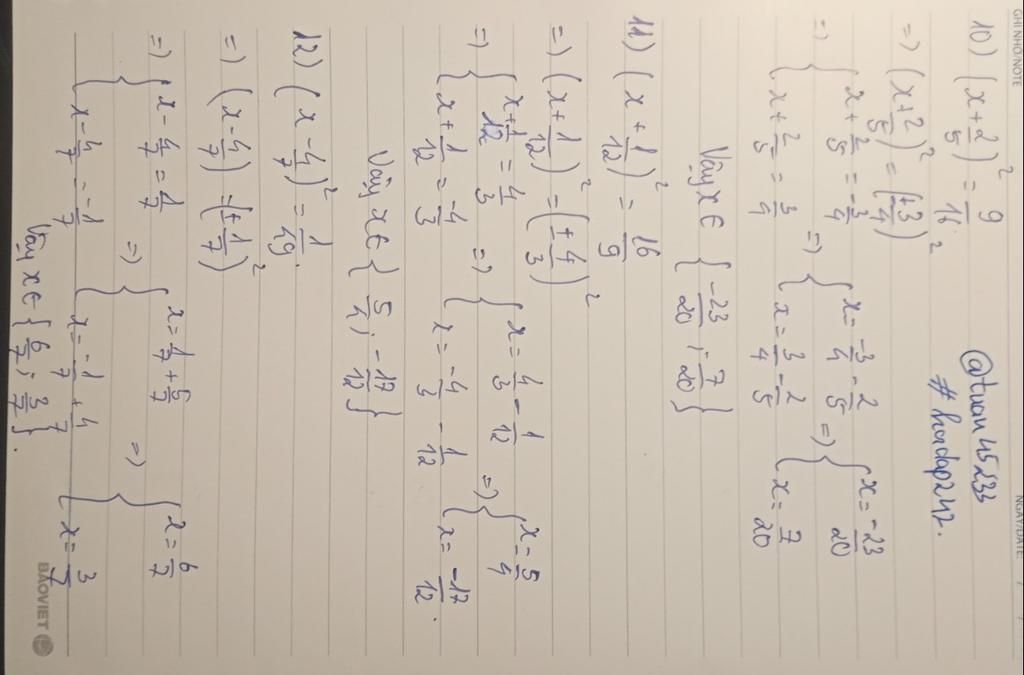 GHI NHỚ/NOTE
NGÀY/DATE: / /
@tuan45233
# hoidap247.
10) (x + 2/5)² = 9/16.
=> (x + 2/5)² = (±3/4)²
=> { x + 2/5 = -3/4 => { x = -3/4 - 2/5 => { x = -23/20
{ x + 2/5 = 3/4 { x = 3/4 - 2/5 { x = 7/20
Vậy x ∈ { -23/20 ; 7/20 }
11) (x + 1/12)² = 16/9
=> (x + 1/12)² = (±4/3)²
=> { x + 1/12 = 4/3 => { x = 4/3 - 1/12 => { x = 5/4
{ x + 1/12 = -4/3 { x = -4/3 - 1/12 { x = -17/12.
Vậy x ∈ { 5/4 ; -17/12 }
12) (x - 4/7)² = 1/49.
=> (x - 4/7)² = (±1/7)²
=> { x - 4/7 = 1/7 => { x = 1/7 + 5/7 => { x = 6/7
{ x - 4/7 = -1/7 { x = -1/7 + 4/7 { x = 3/7
Vậy x ∈ { 6/7 ; 3/7 }.
BAOVIET